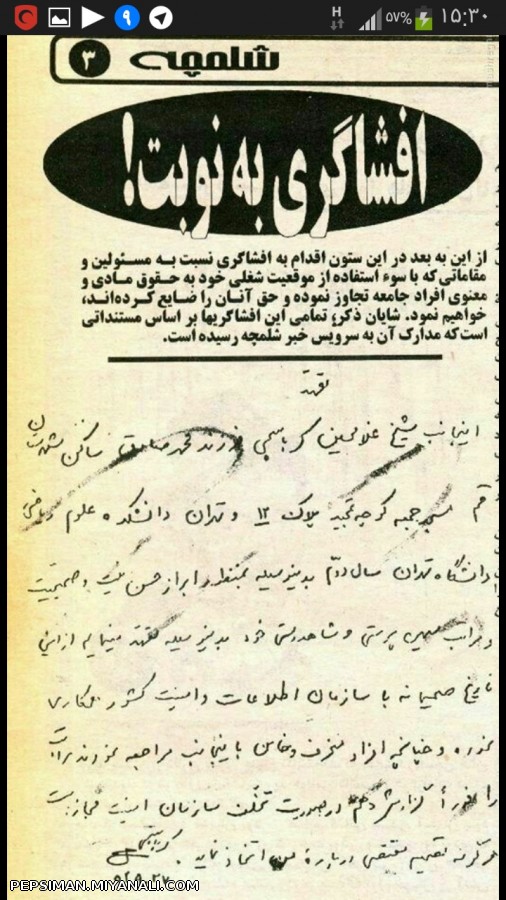 ۱۵:۳۰
۵۷%
H
۳
شلمچه
افشاگری به نوبت!
از این به بعد در این ستون اقدام به افشاگری نسبت به مسئولین و
مقاماتی که با سوء استفاده از موقعیت شغلی خود به حقوق مادی و
معنوی افراد جامعه تجاوز نموده و حق آنان را ضایع کرده‌اند،
خواهیم نمود. شایان ذکر، تمامی این افشاگریها بر اساس مستنداتی
است که مدارک آن به سرویس خبر شلمچه رسیده است.
تعهد
اینجانب شیخ غلامحسین کرباسچی فرزند محمدصادق ساکن شهرستان
قم کوچه پلاک ۱۲ و تهران دانشکده علوم ریاضی
دانشگاه تهران سال دوم بدینوسیله بمنظور ابراز حسن نیت و صمیمیت
و مراتب میهن پرستی و شاهدوستی خود بدینوسیله تعهد مینمایم از این
تاریخ صمیمانه با سازمان اطلاعات و امنیت کشور همکاری
نموده و چنانچه افراد منحرف و خائن با اینجانب مراجعه نمودند مراتب
را فوراً گزارش دهم در صورت تخلف سازمان امنیت مجاز است
هر گونه تصمیم مقتضی درباره من اتخاذ نماید. کرباسچی
PEPSIMAN.MIYANALI.COM